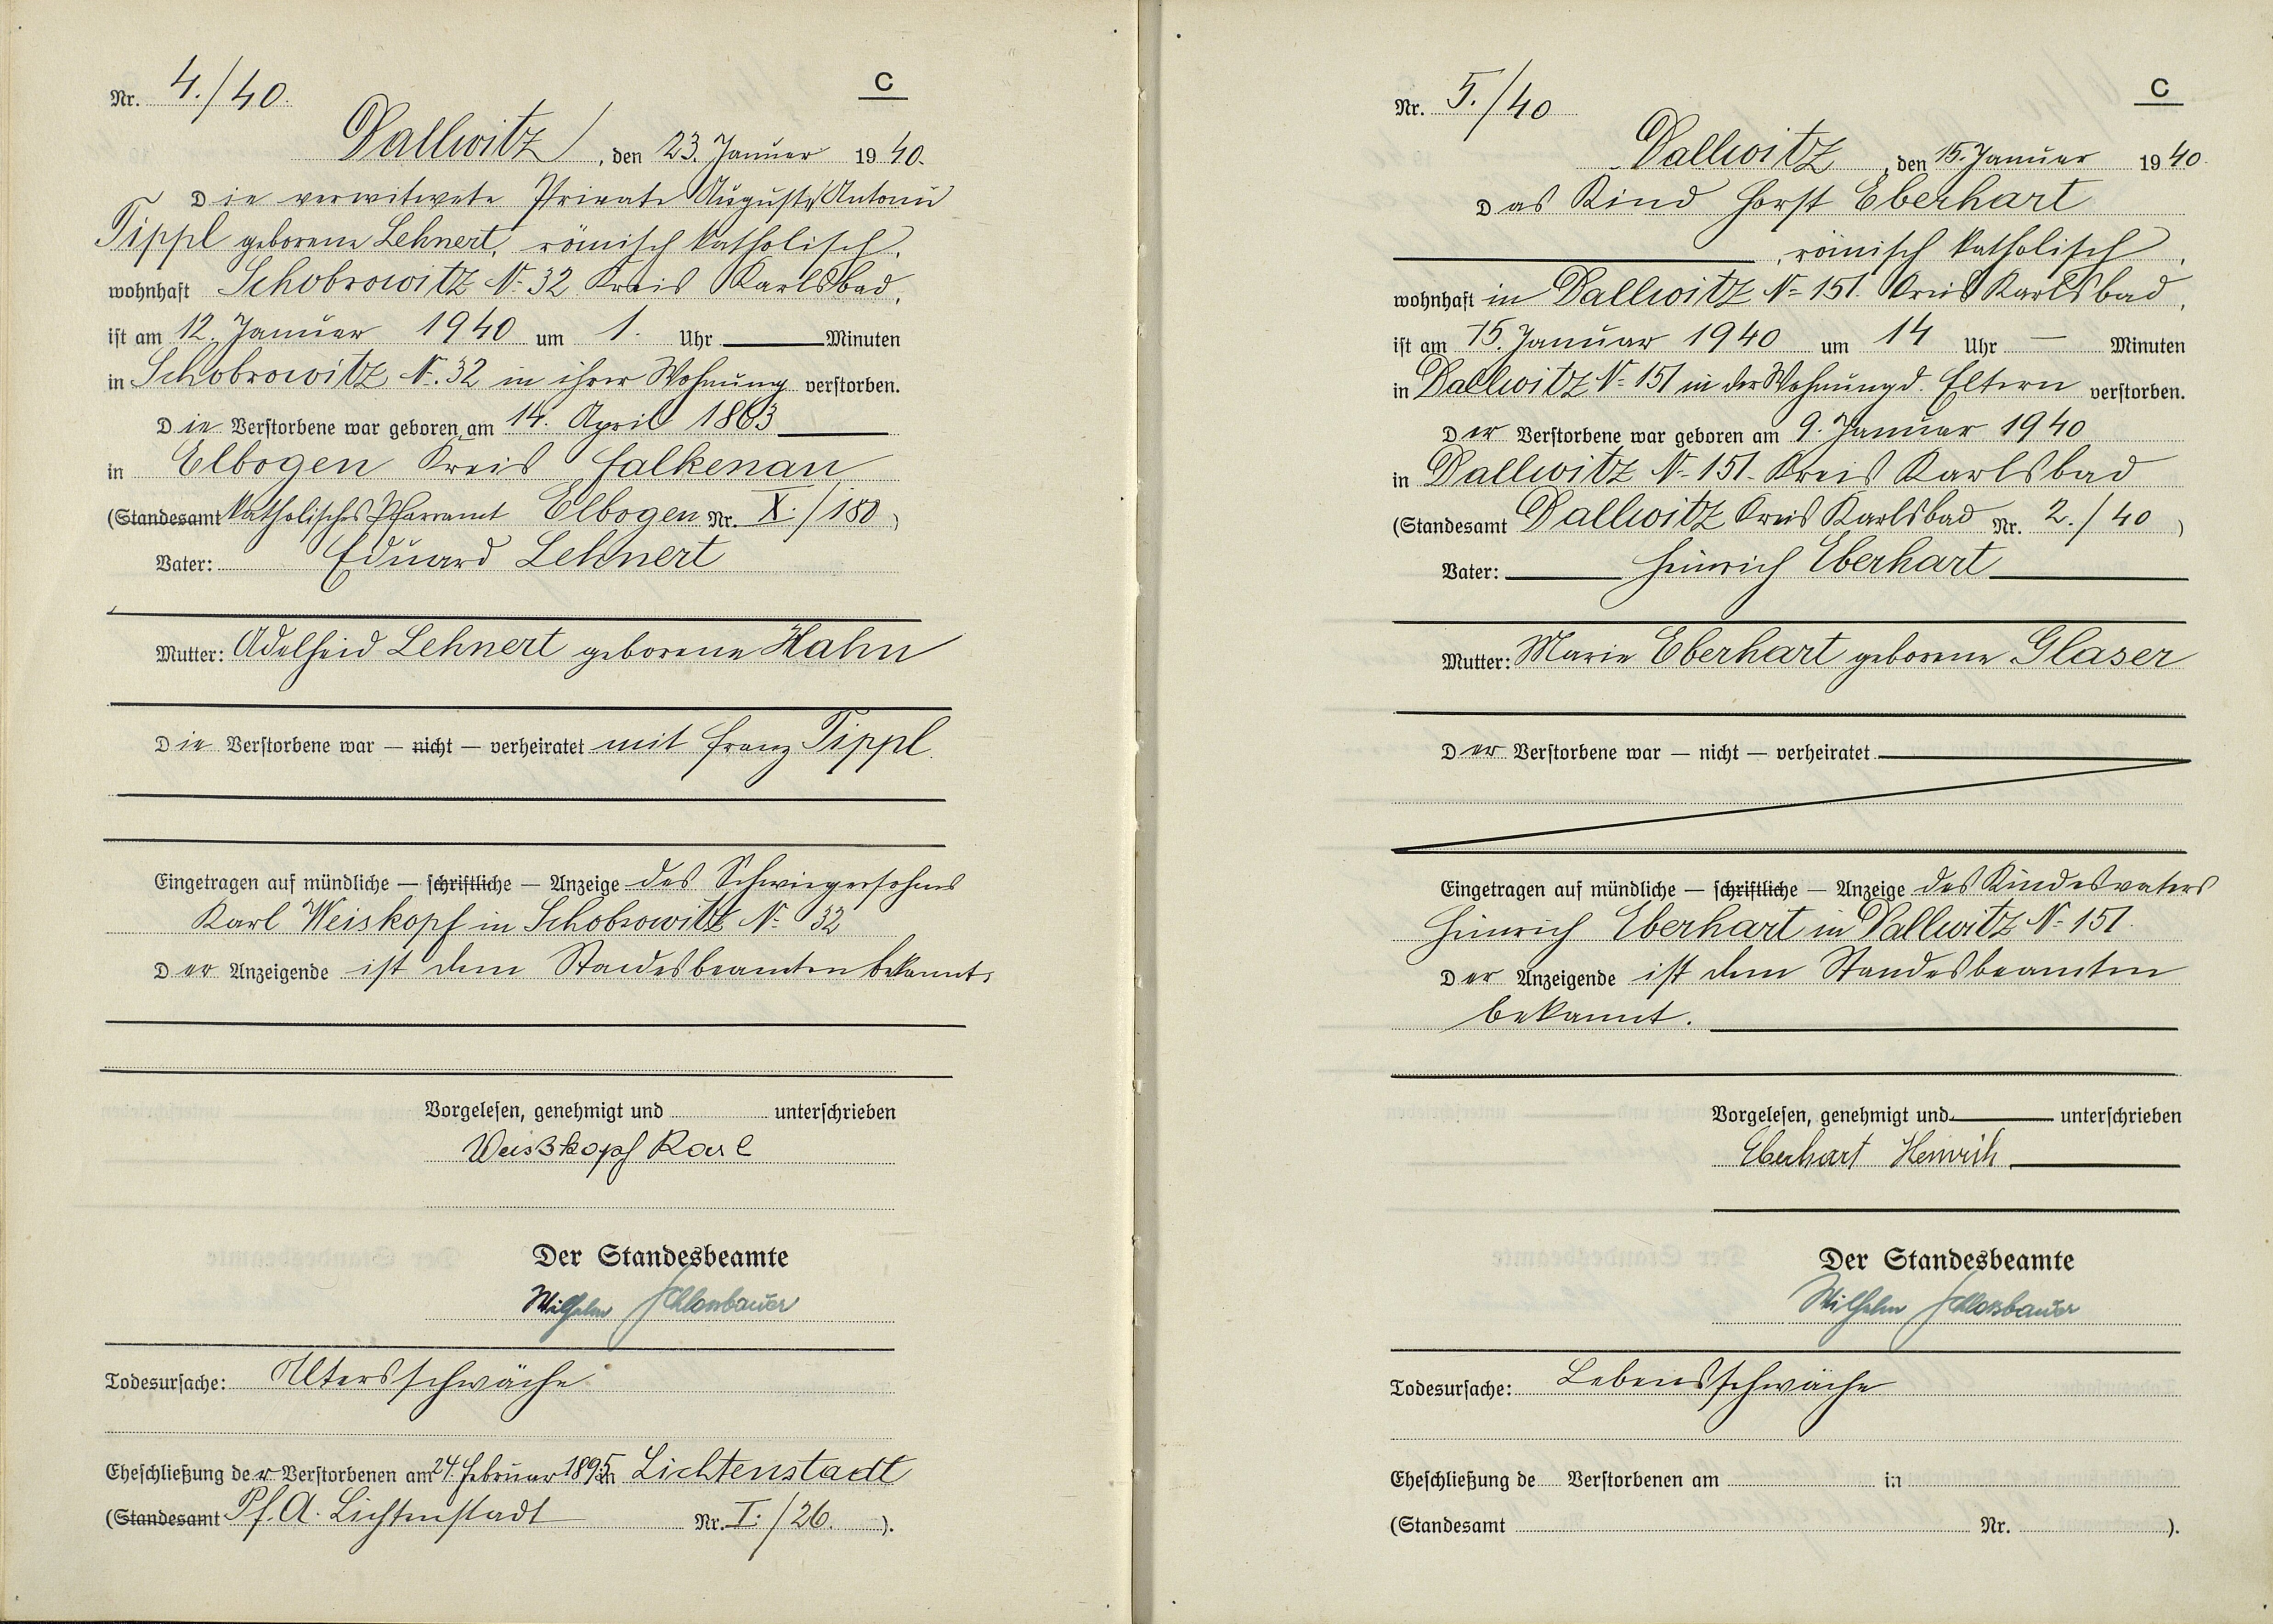 Nr. 4./40.
C
Dallwitz, den 23. Januar 1940.
Die verwitwete Private Auguste Antonie
Tippl geborene Lehnert, römisch katholisch,
wohnhaft Schobrowitz N. 32 Kreis Karlsbad,
ist am 12. Januar 1940 um 1. Uhr Minuten
in Schobrowitz N. 32 in ihrer Wohnung verstorben.
Die Verstorbene war geboren am 14. April 1863
in Elbogen Kreis Falkenau
(Standesamt katholisches Pfarramt Elbogen Nr. X./180)
Vater: Eduard Lehnert
Mutter: Adelheid Lehnert geborene Hahn
Die Verstorbene war — nicht — verheiratet mit Franz Tippl.
Eingetragen auf mündliche — schriftliche — Anzeige des Schwiegersohnes
Karl Weiskopf in Schobrowitz N. 32
Der Anzeigende ist dem Standesbeamten bekannt.
Vorgelesen, genehmigt und unterschrieben
Weisskopf Karl
Der Standesbeamte
Wilhelm Schlossbauer
Todesursache: Altersschwäche
Eheschließung der Verstorbenen am 24. Februar 1895 in Lichtenstadt
(Standesamt Pf. A. Lichtenstadt Nr. I./26.).
Nr. 5./40
C
Dallwitz, den 15. Januar 1940.
Das Kind Horst Eberhart
, römisch katholisch,
wohnhaft in Dallwitz N. 151. Kreis Karlsbad,
ist am 15. Januar 1940 um 14 Uhr — Minuten
in Dallwitz N. 151 in der Wohnung d. Eltern verstorben.
Der Verstorbene war geboren am 9. Januar 1940
in Dallwitz N. 151. Kreis Karlsbad
(Standesamt Dallwitz Kreis Karlsbad Nr. 2./40)
Vater: Heinrich Eberhart
Mutter: Marie Eberhart geborene Glaser
Der Verstorbene war — nicht — verheiratet
Eingetragen auf mündliche — schriftliche — Anzeige des Kindesvaters
Heinrich Eberhart in Dallwitz N. 151.
Der Anzeigende ist dem Standesbeamten
bekannt.
Vorgelesen, genehmigt und unterschrieben
Eberhart Heinrich
Der Standesbeamte
Wilhelm Schlossbauer
Todesursache: Lebensschwäche
Eheschließung de Verstorbenen am in
(Standesamt Nr. ).